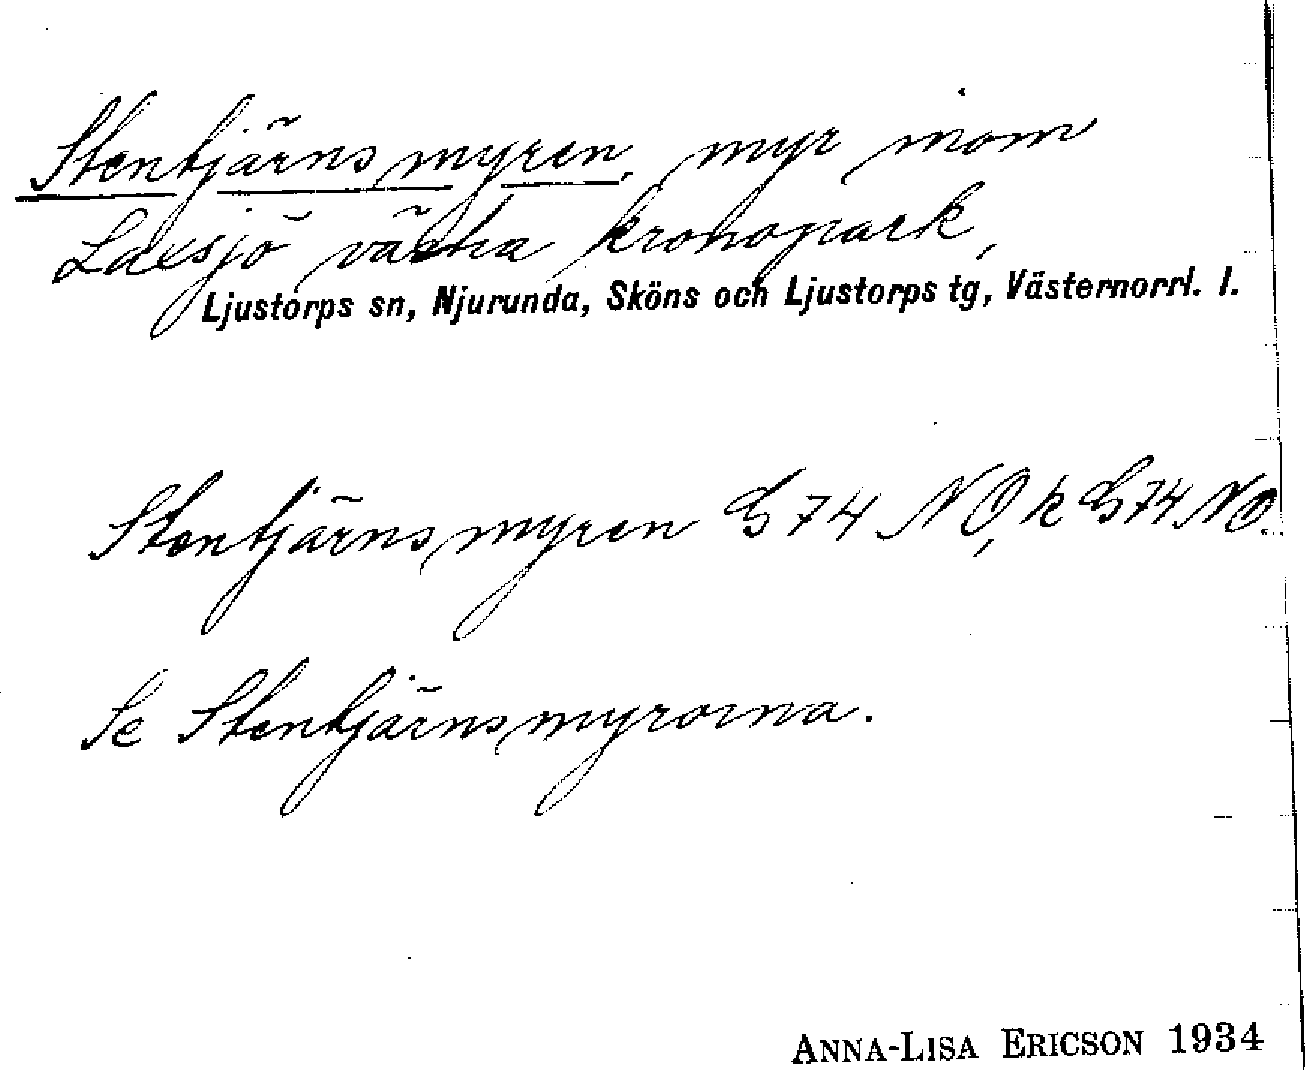 Stentjärnsmyren, myr inom
Laxsjö västra kronopark,
Ljustorps sn, Njurunda, Sköns och Ljustorps tg, Västernorrl. l.
Stentjärnsmyren G 74 NO, k G 74 NO.
Se Stentjärnsmyrorna.
ANNA-LISA ERICSON 1934